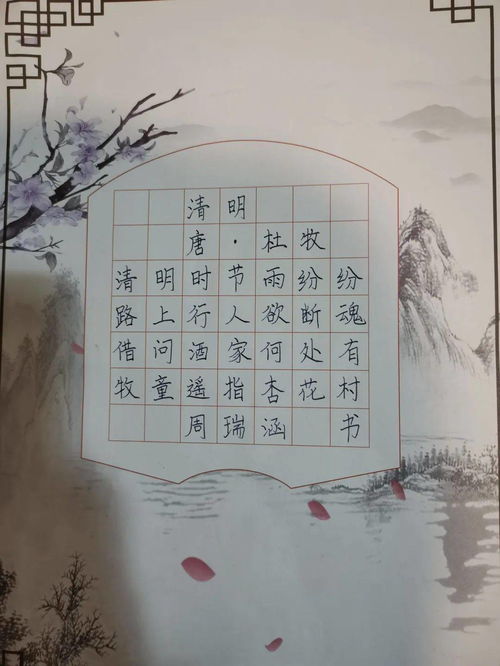 清明
唐·杜牧
清明时节雨纷纷
路上行人欲断魂
借问酒家何处有
牧童遥指杏花村
周瑞涵 书